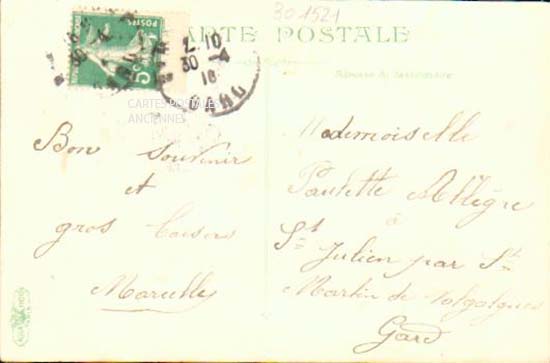 30 1521
CARTE POSTALE
POSTES
2.10
30 -4
16
GARD
CARTES POSTALES
ANCIENNES
Bon souvenir
et
gros baisers
Marcelle
Mademoiselle
Paulette Allègre
à
St Julien par St
Martin de Valgalgues
Gard